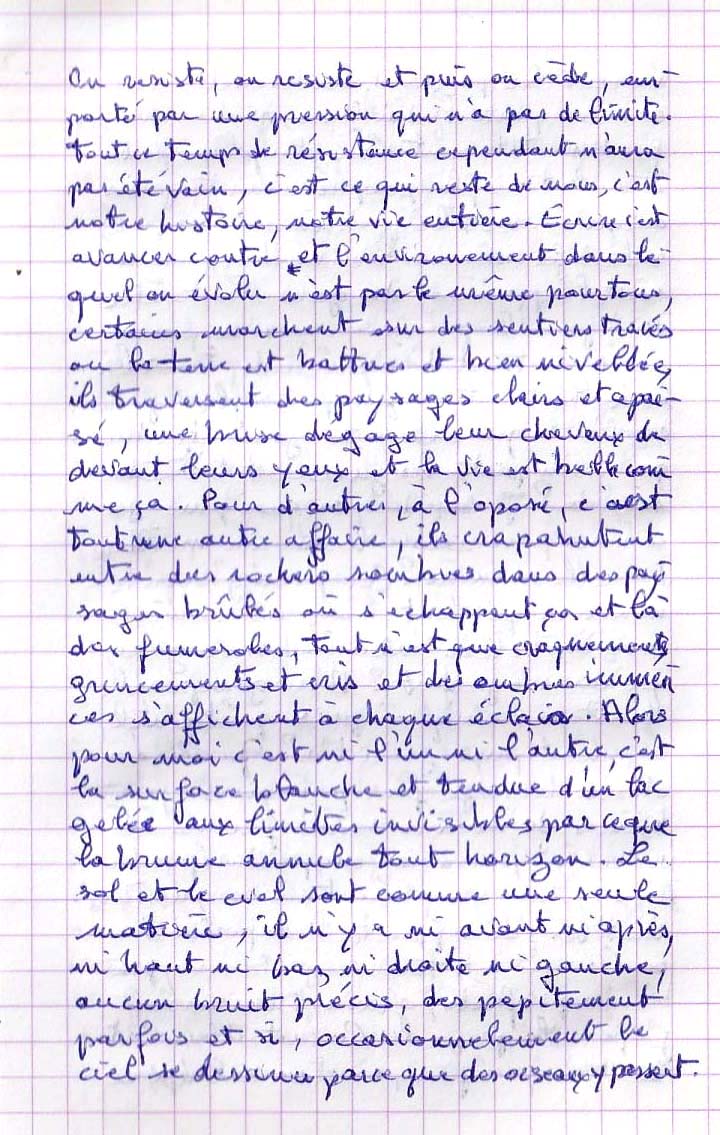 On resiste, on resiste et puis on cède, em-
porté par une pression qui n'a pas de limite.
Tout ce temps de résistance cependant n'aura
pas été vain, c'est ce qui reste de nous, c'est
notre histoire, notre vie entière. Écrire c'est
avancer contre et l'environement dans le-
quel on évolu n'est pas le même pour tous,
certains marchent sur des sentiers tracés
ou la terre est battues et bien nivellée,
ils traversent des paysages clairs et apai-
sé, une brise dégage leur cheveux de
devant leurs yeux et la vie est belle com
me ça. Pour d'autres, à l'oposé, c'est
tout une autre affaire, ils crapahutent
entre des rochers sombres dans des pay
sages brûlés où s'echappent ça et là
des fumeroles, tout n'est que craquements
grincements et cris et des ombres immen
ces s'affichent à chaque éclair. Alors
pour moi c'est ni l'un ni l'autre, c'est
la surface blanche et tendue d'un lac
gelée aux limites invisibles parce que
la brume annule tout horizon. Le
sol et le ciel sont comme une seule
matière, il n'y a ni avant ni après,
ni haut ni bas, ni droite ni gauche,
aucun bruit précis, des pepitement
parfois et si, occasionnelement le
ciel se dessine parce que des oiseaux y passent.